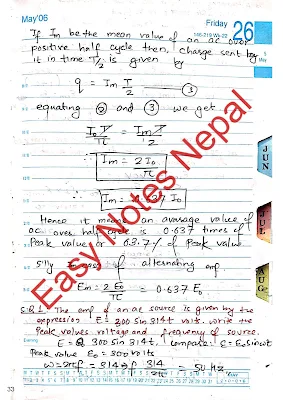 May'06
Friday
26
146-219 Wk-22
If Im be the mean value of an ac over
positive half cycle then, charge sent by
it in time T/2 is given by
q = Im T/2 ——— (3)
equating (2) and (3) we get
I₀T/π = Im T/2
∴ Im = 2I₀/π
∴ Im = 0.637 I₀
Hence it means an avarage value of
ac over half cycle is 0.637 times of
Peak value or 63.7% of Peak value
S'lly in case of alternating emf
Em = 2E₀/π = 0.637 E₀
S.Q.1. The emf of an ac source is given by the
expression E = 300 sin 314 t volts. write the
Peak values voltage and frequency of source.
E = 300 sin 314 t, compare E = E₀ sin wt
Peak value E₀ = 300 volts
w = 2πf = 314 50 Hz
JUN
JUL
AUG
33
Easy Notes Nepal